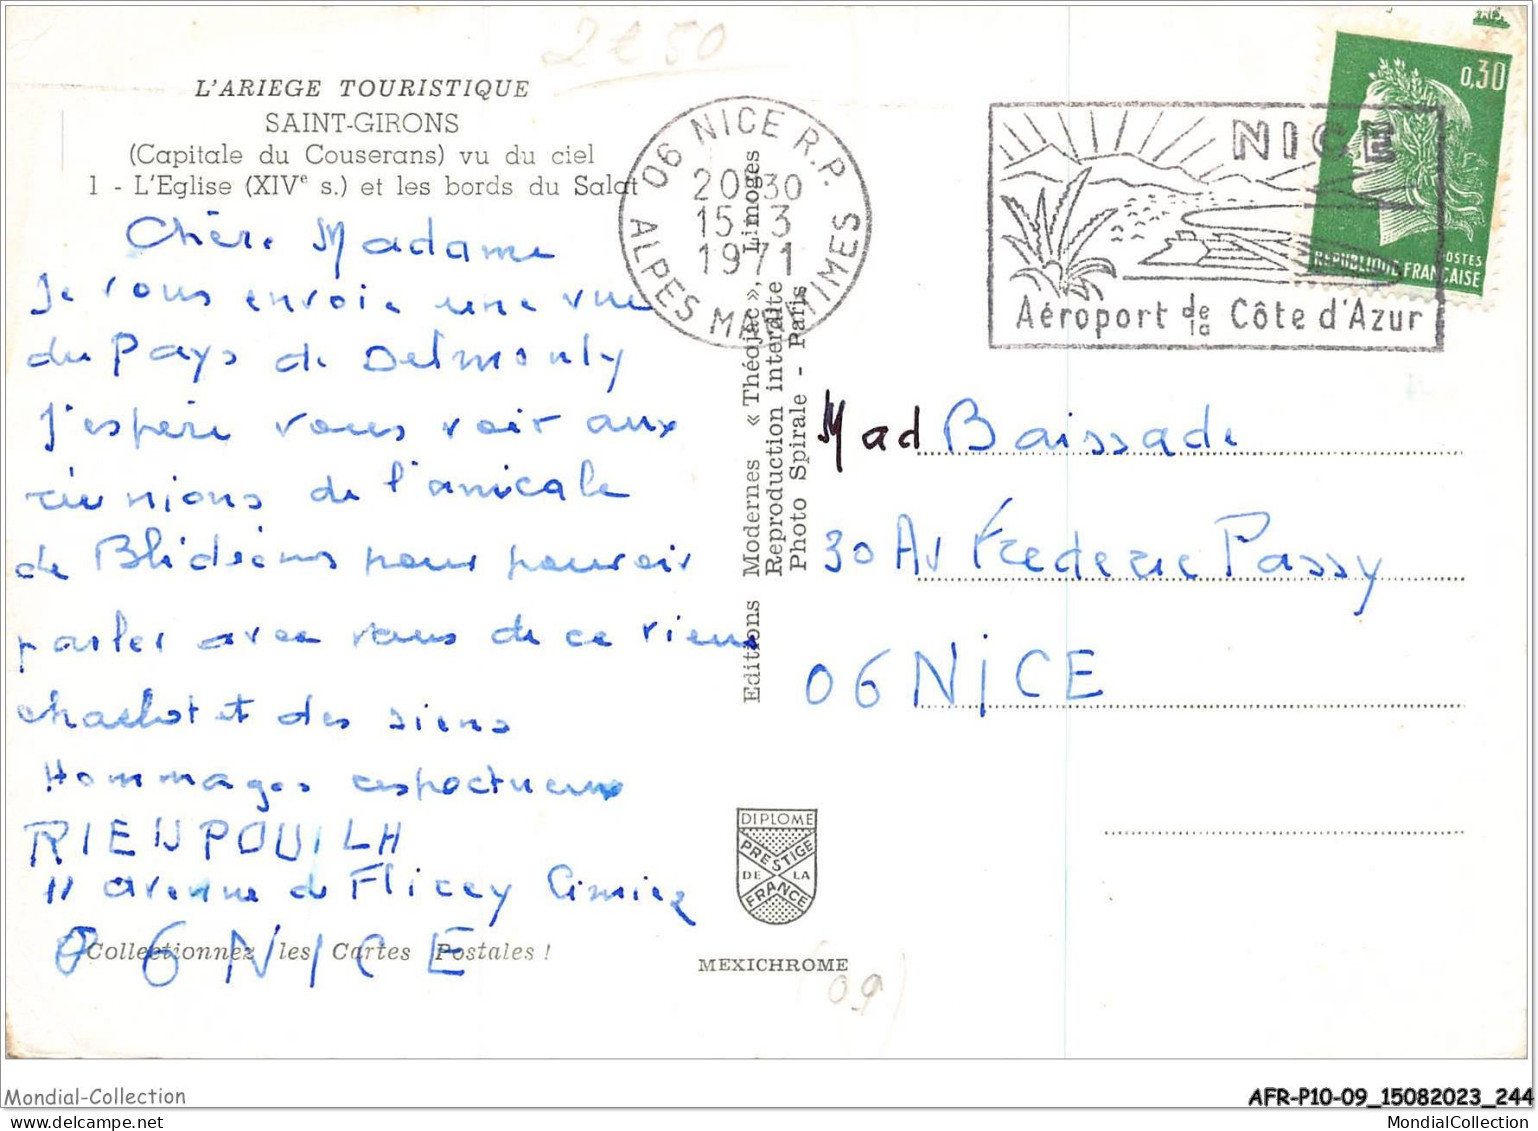 2€50
L'ARIEGE TOURISTIQUE
SAINT-GIRONS
(Capitale du Couserans) vu du ciel
1 - L'Eglise (XIVe s.) et les bords du Salat
Chère Madame
Je vous envoie une vue
du Pays de Delmonly
J'espère vous voir aux
réunions de l'amicale
de Blidéens pour pouvoir
parler avec vous de ce vieux
charlot et des siens
Hommages respectueux
RIEUPOUILH
11 avenue de Flirey Cimiez
06 NICE
Collectionnez les Cartes Postales !
Editions Modernes « Théojac », Limoges
Reproduction interdite
Photo Spirale - Paris
06 NICE R.P.
20H30
15-3
1971
ALPES MARITIMES
NICE
Aéroport de la Côte d'Azur
0,30
POSTES
REPUBLIQUE FRANÇAISE
Mad Baissade
30 Av Frederic Passy
06 NICE
DIPLOME
PRESTIGE
DE LA
FRANCE
MEXICHROME
(09)
Mondial-Collection
AFR-P10-09_15082023_244
MondialCollection.com